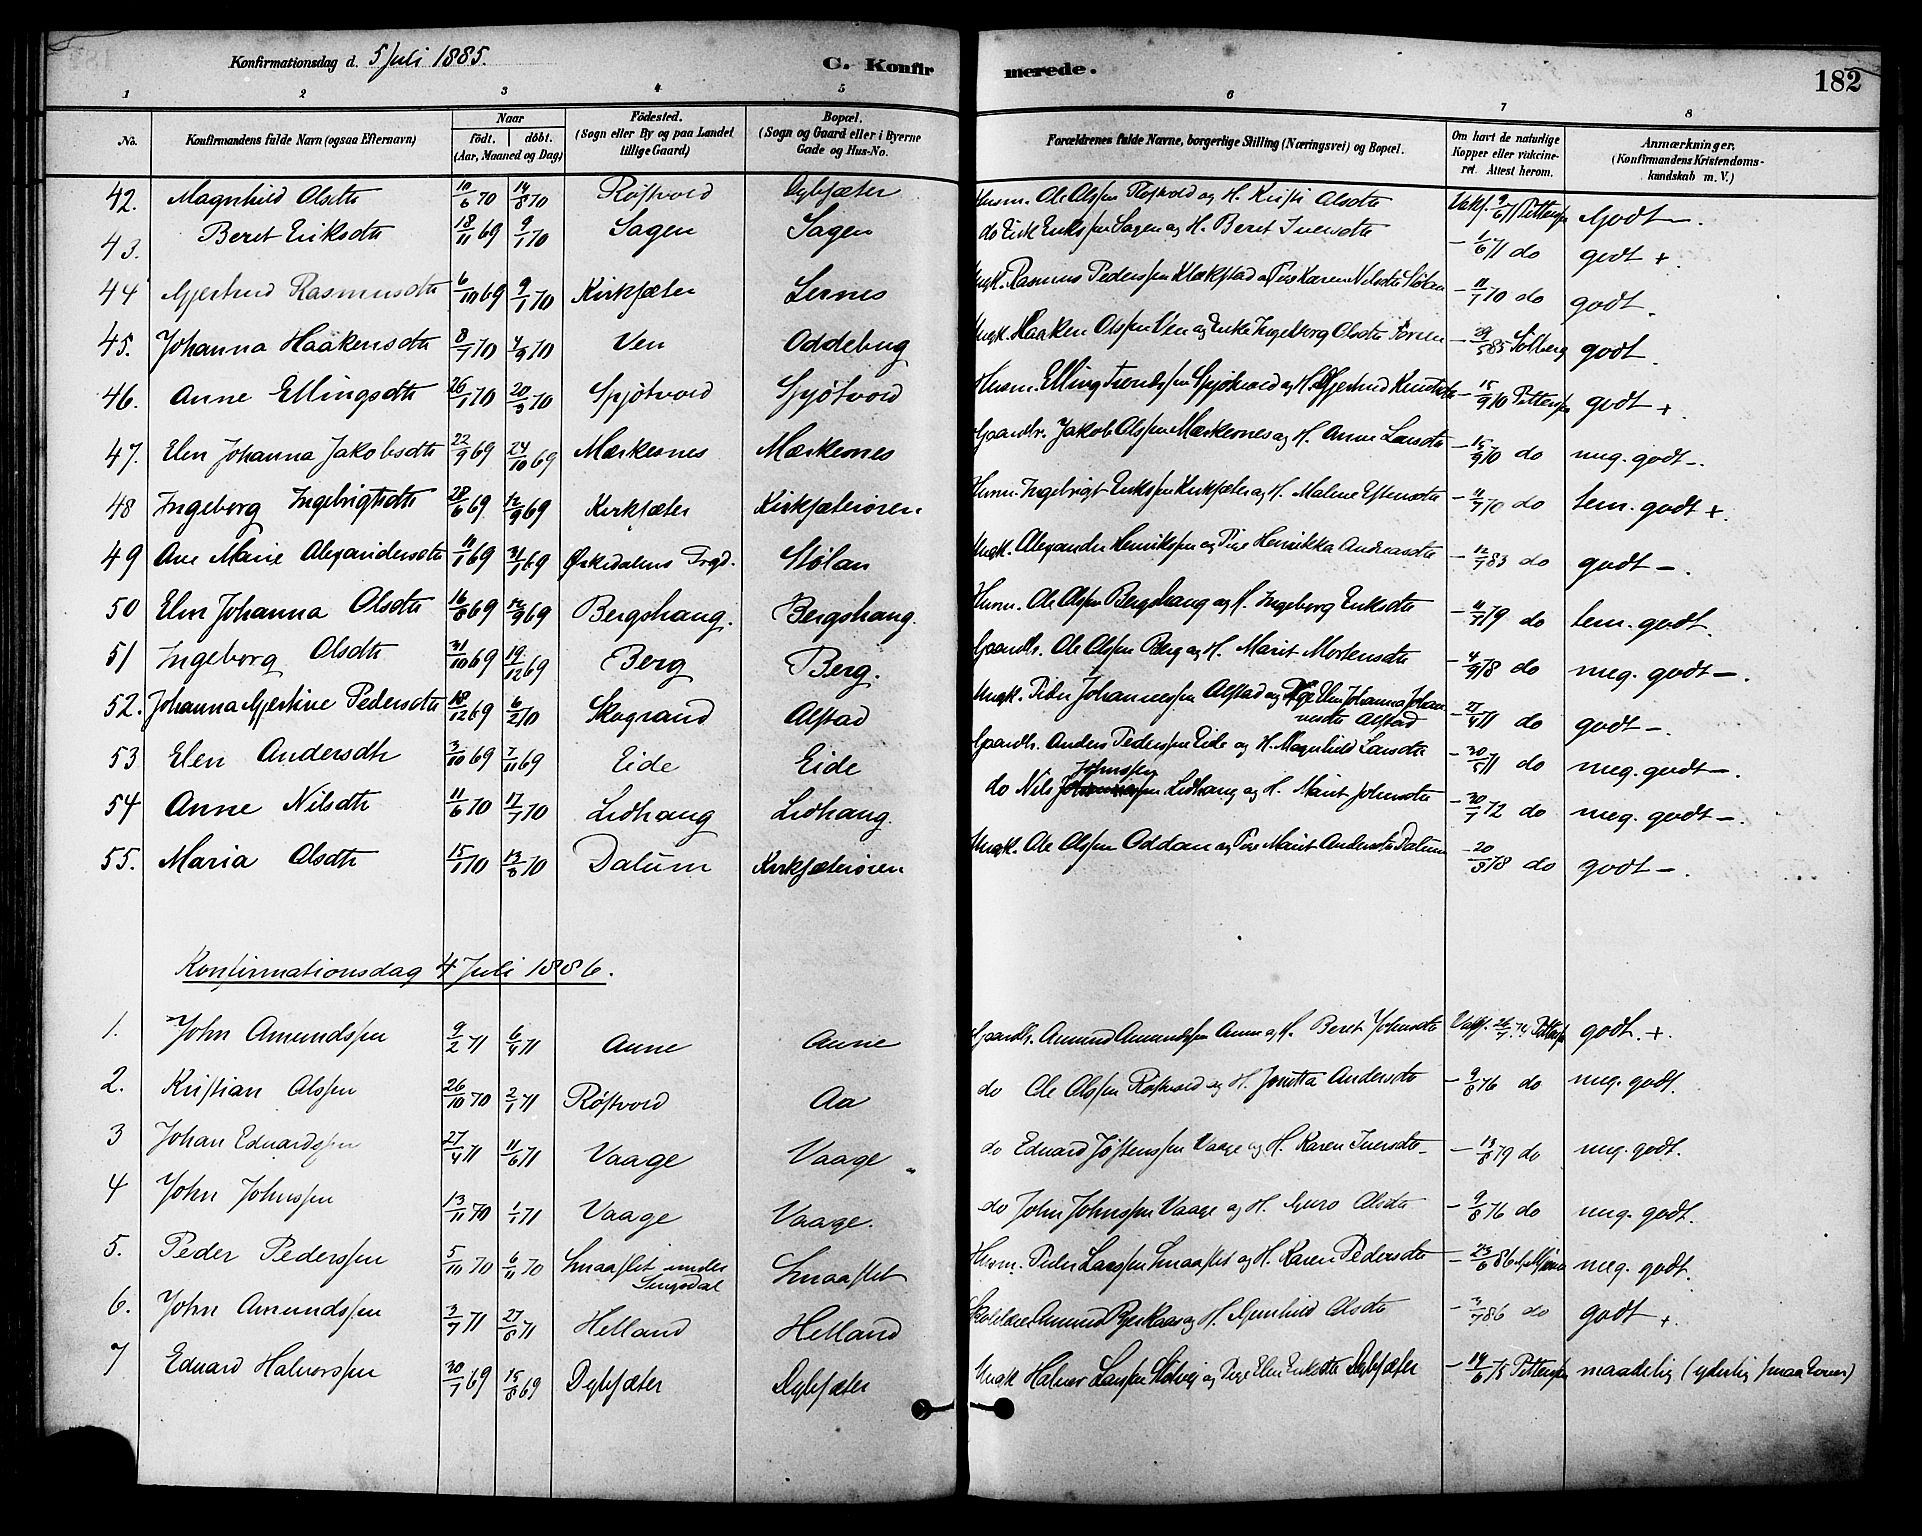 Konfirmationsdag d. 5 Juli 1885.
C. Konfirmerede.
182
1 2 3 4 5 6 7 8
No. Konfirmandens fulde Navn (ogsaa Efternavn) Naar født. døbt. (Aar, Maaned og Dag) Födested. (Sogn eller By og paa Landet tillige Gaard) Bopæl. (Sogn og Gaard eller i Byerne Gade og Hus-No. Forældrenes fulde Navne, borgerlige Stilling (Næringsvei) og Bopæl. Om havt de naturlige Kopper eller vakcineret. Attest herom. Anmærkninger. (Konfirmandens Kristendomskundskab m. V.)
42. Magnhild Olsdtr 10/6 70 14/8 70 Røstvold Dybsæter Husm. Ole Olssen Røstvold og H. Kirsti Olsdtr Vakc. 9/6 71 Pettersen Godt -.
43. Beret Eriksdtr 18/11 69 9/1 70 Sagen Sagen do Erik Erikssen Sagen og H. Beret Iversdtr - 1/6 71 do godt +.
44 Gjertrud Rasmusdtr 6/10 69 9/1 70 Kirksæter Lernes Ungk. Rasmus Pederssen Klækstad Pige Karen Nilsdtr Stølan - 11/7 70 do godt.
45. Johanna Haakensdtr 8/7 70 4/9 70 Ven Oddebug Ungk. Haaken Olssen Ven og Enke Ingeborg Olsdtr - 29/5 85 Solberg godt.
46. Anne Ellingsdtr 26/1 70 20/3 70 Spjøtvold Spjøtvold Husm. Elling Trondssen Spjøtvold og H. Gjertrud Knutsdtr - 15/9 70 Pettersen godt +
47. Elen Johanna Jakobsdtr 22/9 69 24/10 69 Mærkesnes Mærkernes Gaardbr. Jakob Olssen Mærkernes og H. Anne Larsdtr - 15/9 70 do meg. godt -.
48 Ingeborg Ingebrigtsdtr 28/6 69 12/9 69 Kirksæter Kirksæterøren Husm. Ingebrigt Erikssen Kirksæter og H. Malene Estensdtr - 11/7 70 do tem. godt +.
49 Ane Marie Alexandersdtr 11/1 69 31/1 69 Ørkedalens Prgd. Stølan Ungk. Alexander Henrikssen og Pige Henrikka Andreasdtr - 12/7 83 do godt -.
50 Elen Johanna Olsdtr 16/8 69 12/9 69 Bergshaug. Bergshaug. Husm. Ole Olssen Bergshaug og H. Ingeborg Eriksdtr - 11/7 79 do tem. godt.
51 Ingeborg Olsdtr 31/10 69 19/12 69 Berg Berg. Gaardbr. Ole Olssen Berg og H. Marit Mortensdtr - 4/9 78 do meg. godt -.
52. Johanna Gjertine Pedersdtr 18/12 69 6/2 70 Skogrand Alstad Ungk. Peder Johannessen Alstad og Pige Elen Johanna Johannesdtr Alstad - 27/4 71 do godt -.
53 Elen Andersdtr 3/10 69 7/11 69 Eide Eide Gaardbr. Anders Pederssen Eide og H. Magnhild Larsdtr - 30/5 71 do meg. godt -.
54 Anne Nilsdtr 11/6 70 17/7 70 Lidhaug Lidhaug. do Nils Johnssen Lidhaug og H. Marit Johnsdtr - 30/7 72 do meg. godt -.
55. Maria Olsdtr 15/1 70 13/8 70 Dalum Kirksæterøren Ungk. Ole Olssen Oddan og Pige Marit Andersdtr Dalum - 20/3 78 do godt -.
Konfirmationsdag 4 Juli 1886.
1. John Amundssen 9/2 71 6/4 71 Aune Aune Gaardbr. Amund Amundssen Aune og H. Beret Johnsdtr Vakc. Pettersen godt. +.
2. Kristian Olssen 26/10 70 2/1 71 Røstvold Aa do Ole Olssen Røstvold og H. Jonetta Andersdtr - 9/8 76 do meg. godt.
3 Johan Eduardssen 27/4 71 11/6 71 Vaage Vaage do Eduard Jøstenssen Vaage og H. Karen Iversdtr - 13/8 79 do meg. godt.
4 John Johnssen 13/11 70 1/1 71 Vaage Vaage. do John Johnssen Vaage og H. Guro Olsdtr - 9/8 76 do meg. godt.
5. Peder Pederssen 5/10 70 6/11 70 Smaaslet under Singsdal Smaaslet Husm. Peder Larssen Smaaslet og H. Karen Pedersdtr - 23/6 86 meg. godt.
6. John Amundssen 3/7 71 27/8 71 Helland Helland Skolelærer Amund Bjerkaas og H. Gunhild Olsdtr - 3/7 86 do godt +.
7 Eduard Halvorssen 30/7 69 15/8 69 Dybsæter Dybsæter Ungk Halvor Larssen og Pige Elen Eriksdtr Dybsæter - 14/6 75 Pettersen maadelig (yderlig smaa Evner)